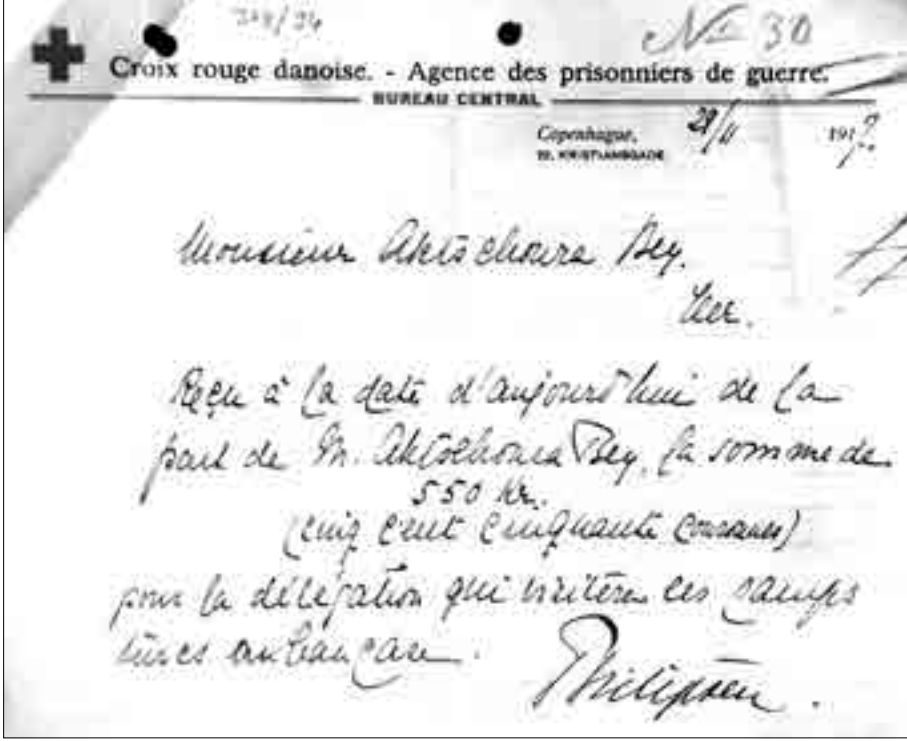 No 30
Croix rouge danoise. - Agence des prisonniers de guerre.
BUREAU CENTRAL
Copenhague, 28/11 191
22, KRISTIANSGADE
Monsieur Aktschoura Bey.
Reçu à la date d'aujourd'hui de la
part de M. Aktschoura Bey, la somme de
550 Kr.
(cinq cent cinquante couronnes)
pour la délégation qui visitera les camps
turcs au Caucase.
Philipsen.